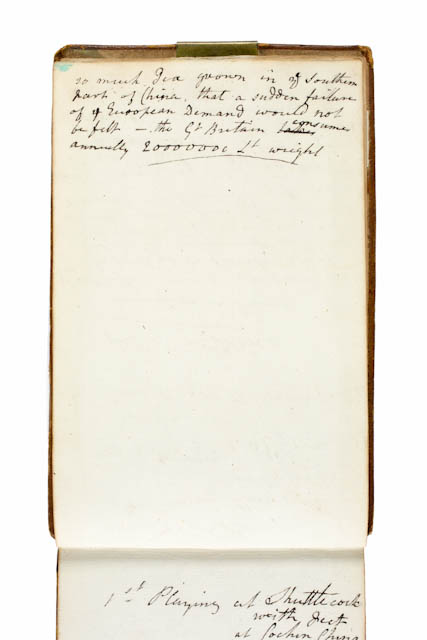 so much Tea grown in ye Southern
Parts of China, that a sudden failure
of ye European Demand would not
be felt – tho Gt Britain consumes
annually 20000000 Lt weight
1st Playing at Shuttlecock
with feet
at Cochin China